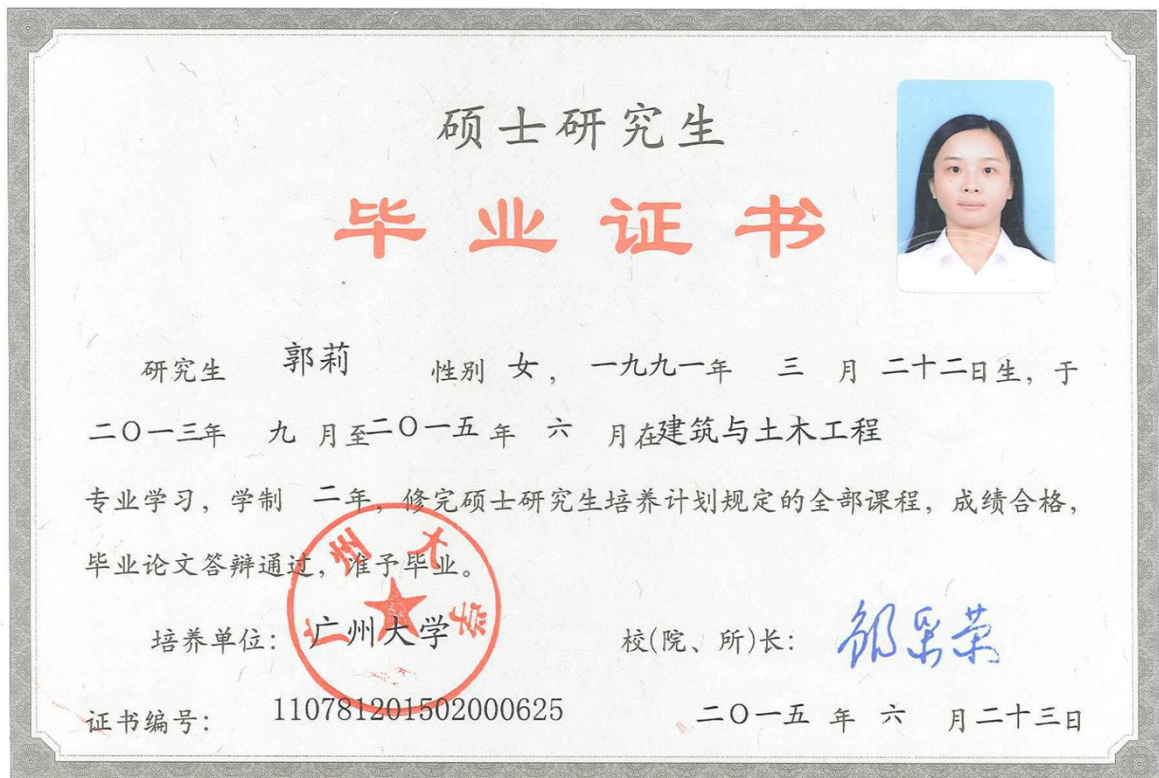 硕士研究生
毕业证书
研究生 郭莉 性别 女， 一九九一年 三 月 二十二日生，于
二〇一三年 九 月至二〇一五 年 六 月在建筑与土木工程
专业学习，学制 二年，修完硕士研究生培养计划规定的全部课程，成绩合格，
毕业论文答辩通过，准予毕业。
培养单位：广州大学 校(院、所)长：
广州大学
证书编号： 110781201502000625 二〇一五 年 六 月二十三日